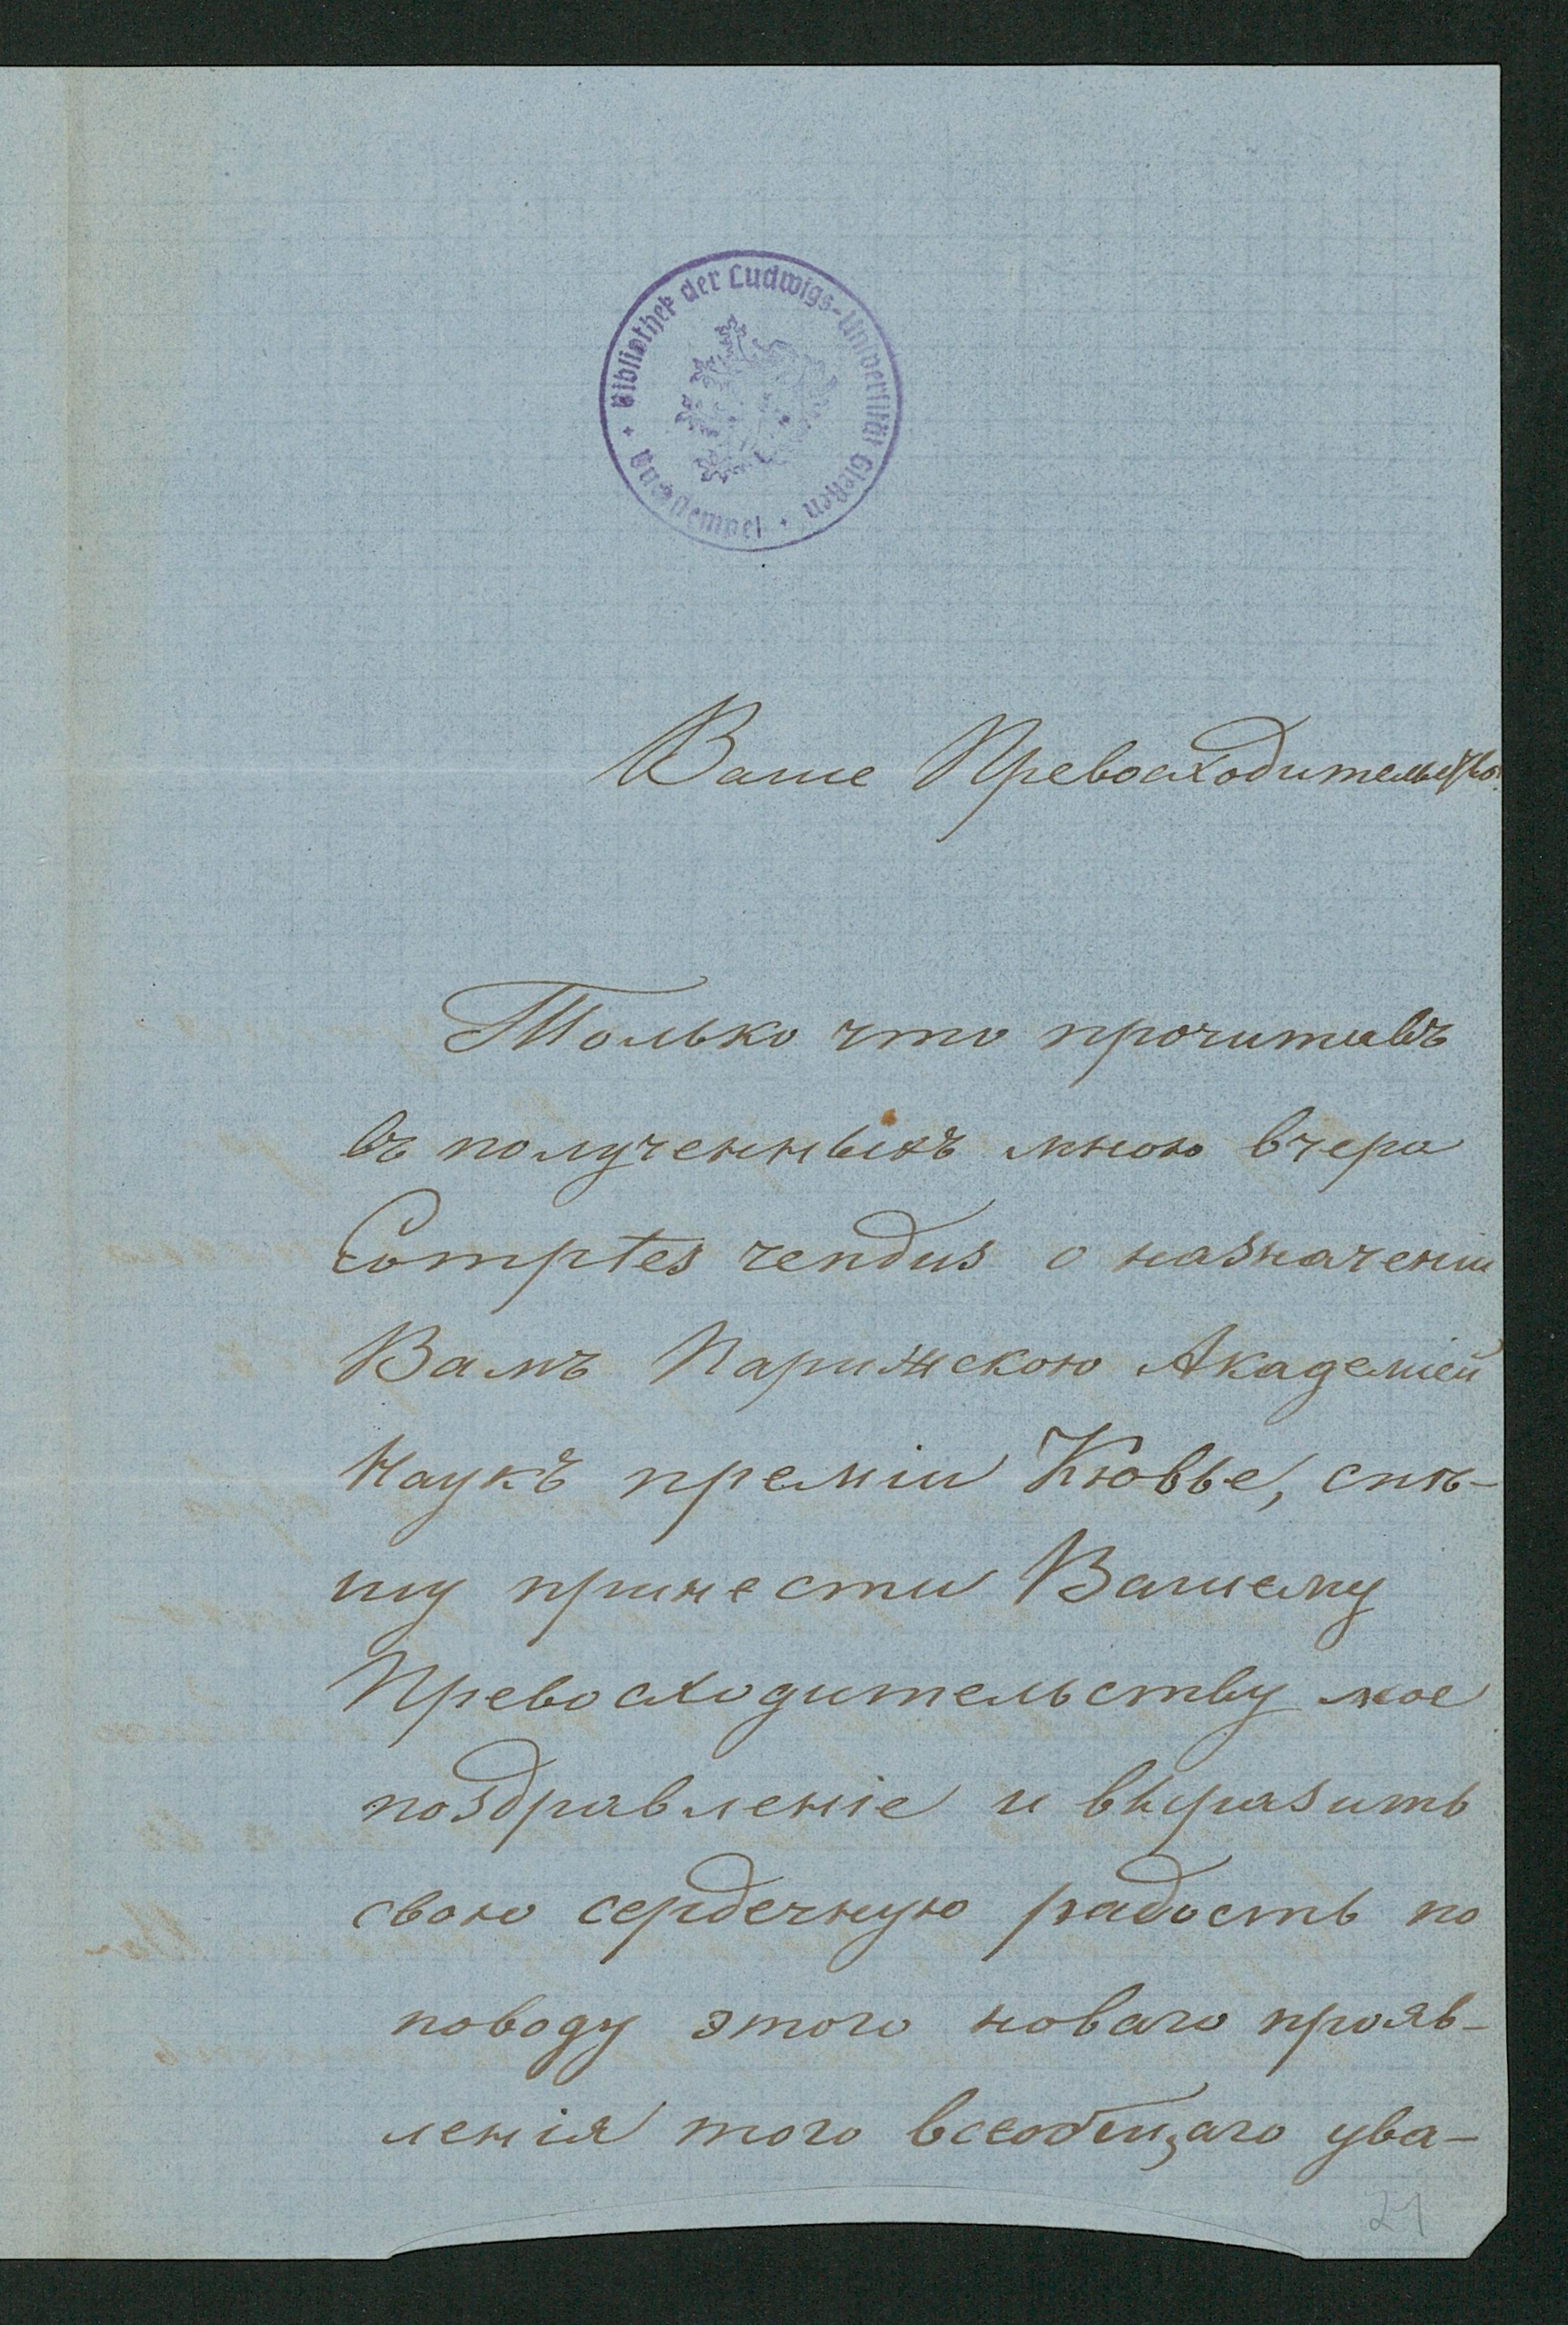 Bibliothek der Ludwigs-Universität Gießen
Buchstempel
Ваше Превосходительство!
Только что прочитавъ
въ полученныхъ мною вчера
Comptes rendus о назначеніи
Вамъ Парижскою Академіей
Наукъ преміи Кювье, спѣ-
шу принести Вашему
Превосходительству мое
поздравленіе и выразить
свою сердечную радость по
поводу этого новаго прояв-
ленія того всеобщаго ува-
21